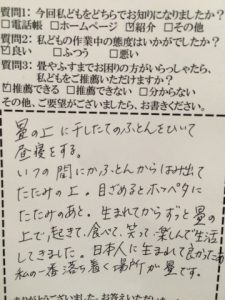 質問1：今回私どもをどちらでお知りになりましたか？
□電話帳 □ホームページ ☑紹介 □その他
質問2：私どもの作業中の態度はいかがでしたか？
☑良い □ふつう □悪い
質問3：畳やふすまでお困りの方がいらっしゃたら、
私どもをご推薦いただけますか？
☑推薦できる □推薦できない □分からない
その他、ご要望がございましたら、お書きください。
畳の上に干したてのふとんをひいて
昼寝をする。
いつの間にかふとんからはみ出て
たたみの上。目ざめるとホッペタに
たたみのあと。生まれてからずっと畳の
上で起きて、食べて、笑って、楽しんで生活
してきました。日本人に生まれて良かった
私の一番落ち着く場所が畳です。
ありがとうございました。お答えいただいた